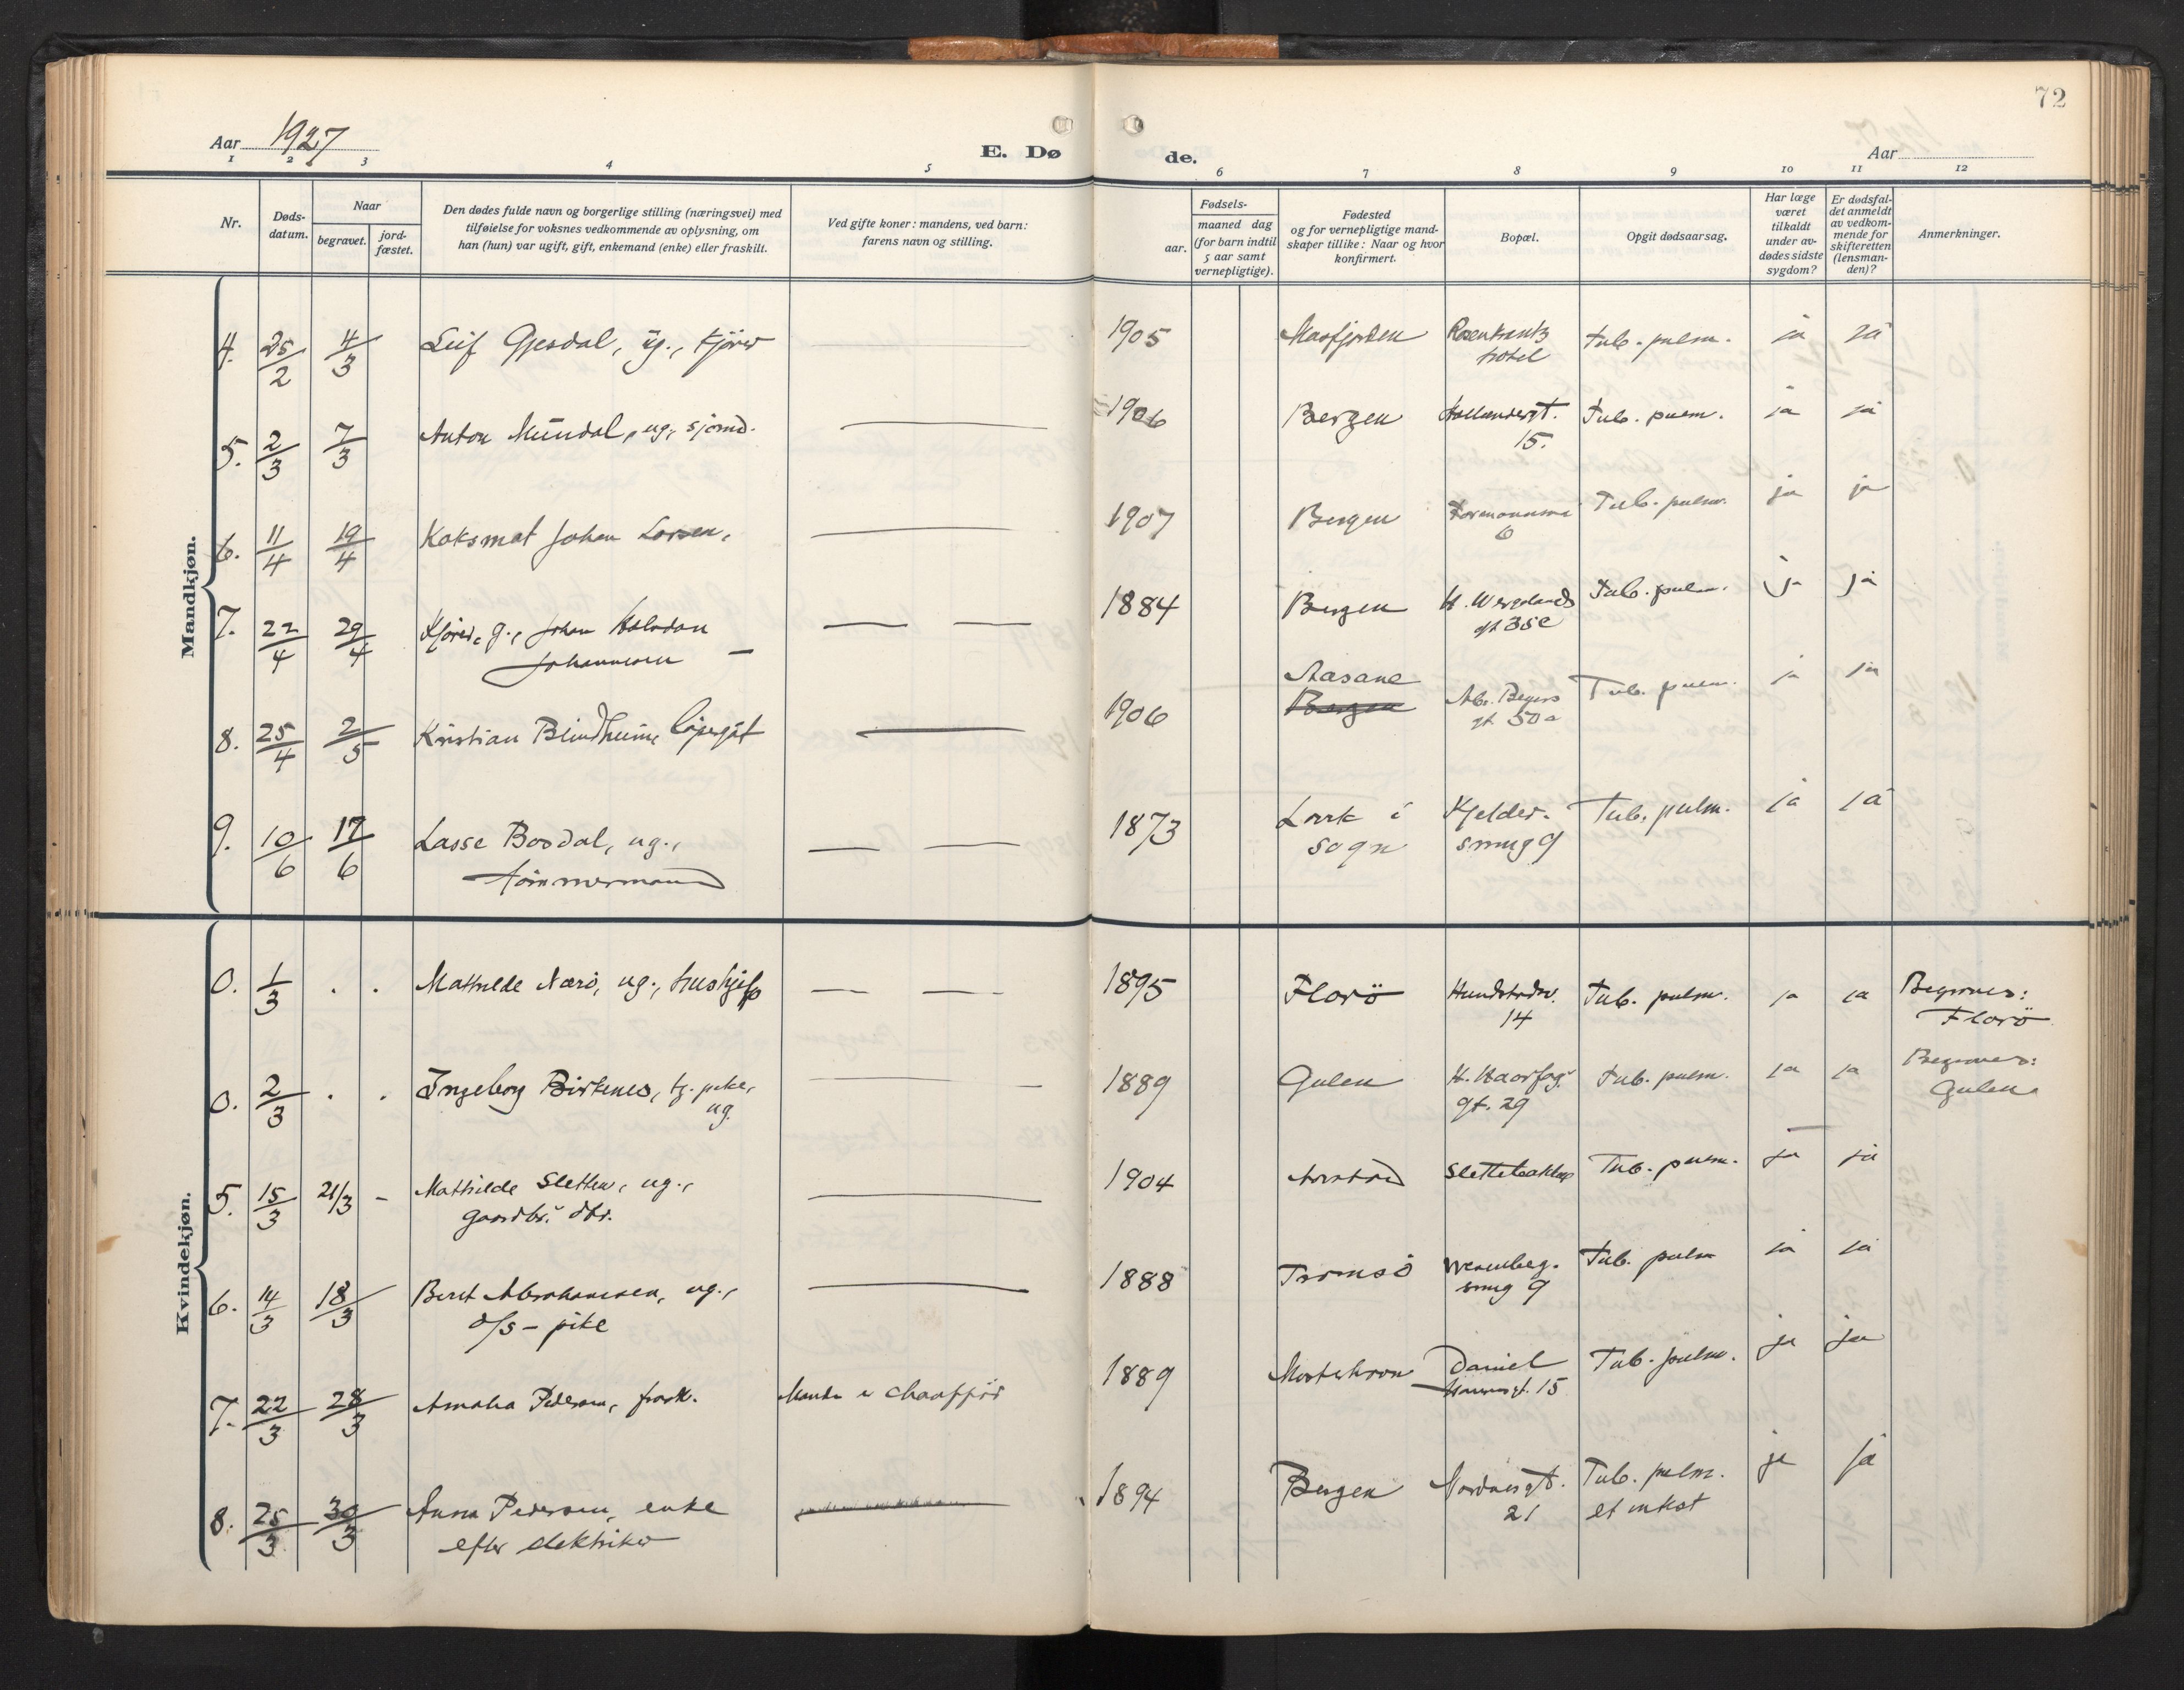 72
Aar 1927
E. Dø
de.
Aar
1 2 3 4 5 6 7 8 9 10 11 12
Nr.
Døds-
datum.
Naar
begravet.
jord-
fæstet.
Den dødes fulde navn og borgerlige stilling (næringsvei) med
tilføielse for voksnes vedkommende av oplysning, om
han (hun) var ugift, gift, enkemand (enke) eller fraskilt.
Ved gifte koner: mandens, ved barn:
farens navn og stilling.
Fødsels-
aar.
maaned dag
(for barn indtil
5 aar samt
vernepligtige).
Fødested
og for vernepligtige mand-
skaper tillike: Naar og hvor
konfirmert.
Bopæl.
Opgit dødsaarsag.
Har læge
været
tilkaldt
under av-
dødes sidste
sygdom?
Er dødsfal-
det anmeldt
av vedkom-
mende for
skifteretten
(lensman-
den)?
Anmerkninger.
Mandkjøn.
4. 25/2 4/3 Leif Gjesdal, ug., kjører — 1905 Masfjorden Rosenkrantz tub. pulm. ja ja
hotel
5. 2/3 7/3 Anton Mundal, ug., sjømd. — 1906 Bergen Hollendergt. Tub. pulm. ja ja
15.
6. 11/4 19/4 Koksmat Johan — 1907 Bergen Tub. pulm. ja ja
6
7. 22/4 29/4 Kjører, g., Johan Halvdan — — 1884 Bergen H. Wergelands Tub. pulm. ja ja
Johannesen — gt 35c
8. 25/4 2/5 Kristian Blindheim, — 1906 Aasane Tub. pulm. ja ja
Bergen gt 50a
9. 10/6 17/6 Lasse Bosdal, ug., — — 1873 i Kjelder- Tub. pulm. ja ja
tømmermand Sogn smug 9
Kvindekjøn.
0. 1/3 . . Mathilde Nærø, ug., hushjelp — — 1895 Florö Tub. pulm. ja ja Begraves:
14 Florö
0. 2/3 . . Ingeborg Birkenes, tj. pike, — — 1889 Gulen H. Haarfag. tub. pulm. ja ja Begraves:
ug. gt. 29 Gulen
5. 15/3 21/3 - Mathilde Sletten, ug., — 1904 Aarstad Slettebakken Tub. pulm. ja ja
gaardbr. dtr.
6. 14/3 18/3 Beret Abrahamsen, ug., — 1888 Tromsö Wesenberg- Tub. pulm ja ja
smug 9
7. 22/3 28/3 Amalia Pedersen, frask. chaafför 1889 Daniel Tub. pulm. ja ja
Hansensgt. 15
8. 25/3 30/3 Anna Pedersen, enke 1894 Bergen Nordnesgt. Tub. pulm. ja ja
efter elektriker 21 et